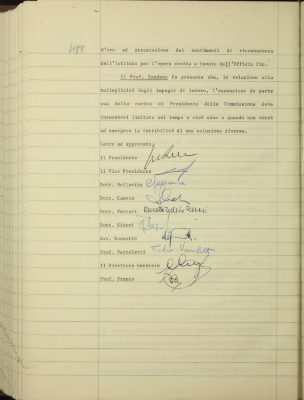 d'oro ad attestazione dei sentimenti di riconoscenza
dell'Istituto per l'opera svolta a favore dell'Ufficio Pio.
Il Prof. fa presente che, in relazione alla
molteplicità degli impegni di lavoro, l'assunzione da parte
sua della carica di Presidente della Commissione deve
intendersi limitata nel tempo e cioè sino a quando non verrà
ad emergere la fattibilità di una soluzione diversa.
Letto ed approvato.
Il Presidente
Il Vice Presidente
Dott. Bollettin
Dott.
Dott. Ferrari
Dott. Gianni
Avv.
Prof.
Il Direttore Generale
Prof. Franco